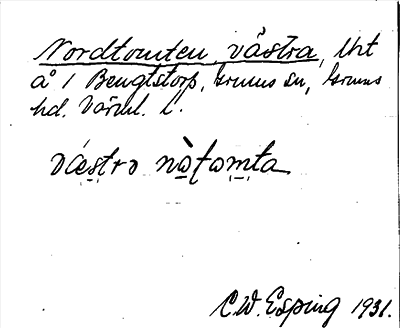 Nordtomten, västra, lht
å 1 Bengtstorp, Grums sn, Grums
hd. Värml. l.
væstrɔ nɔ̀tɔmta
C.W. Esping 1931.